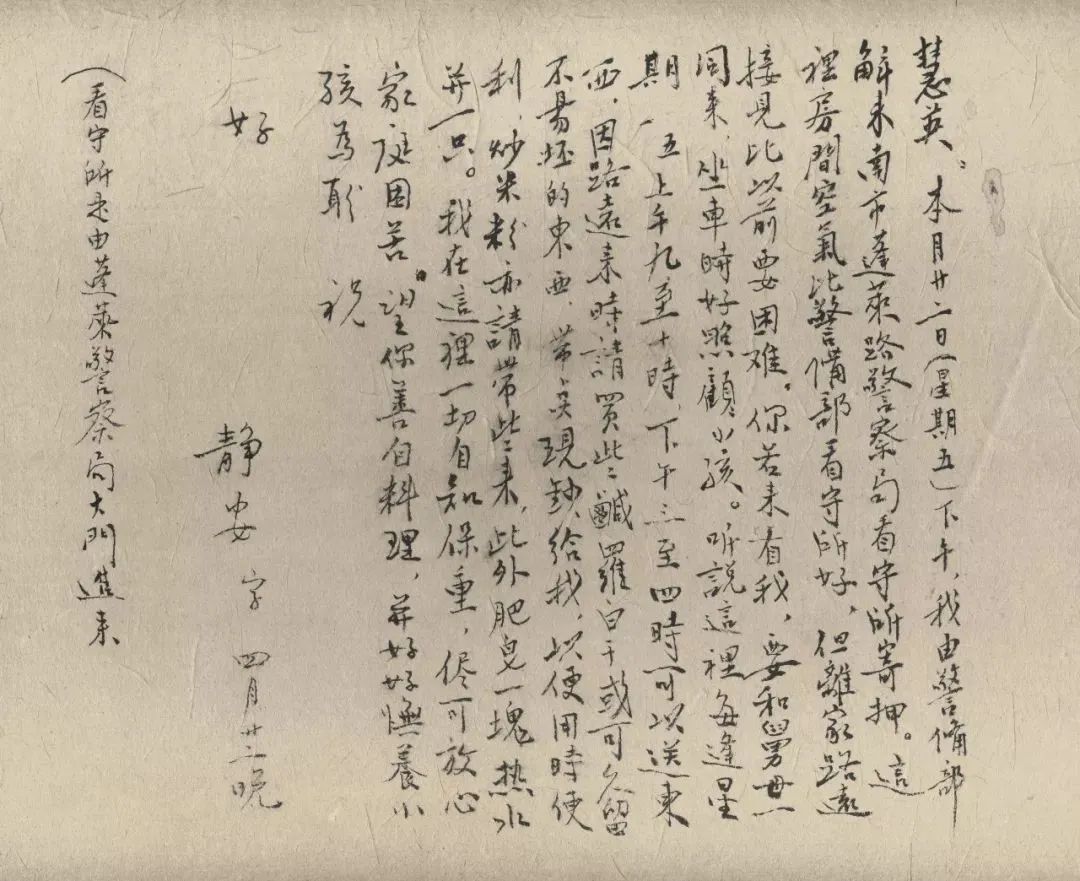 慧英：本月廿二日（星期五）下午，我由警備部
解來南市蓬萊路警察局看守所寄押。這
裡房間空氣比警備部看守所好，但離家路遠
接見比以前要困难。你若来看我，要和舅母一
同来，坐車時好照顧小孩。听説這裡每逢星
期一、五上午九至十時，下午三至四時可以送東
西，因路遠来時請買些鹹羅白干或可久留
不易坯的東西，带点現鈔給我，以便用時便
利，炒米粉亦請帶些来，此外肥皂一塊热水
并一只。我在這裡一切自知保重，侭可放心
家庭困苦，望你善自料理，并好好撫養小
孩為盼 祝
好
静安 字 四月廿二晚
（看守所是由蓬萊警察局大門進来